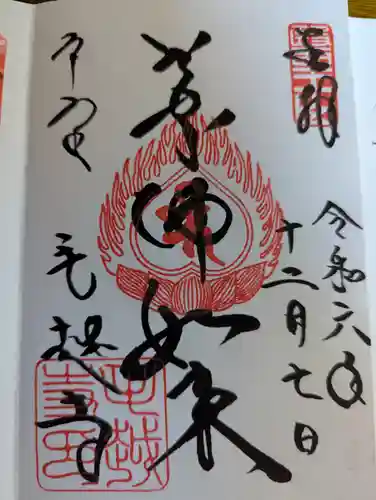 奉拝
令和六年
十二月七日
薬師如来
毛越寺
毛越寺印